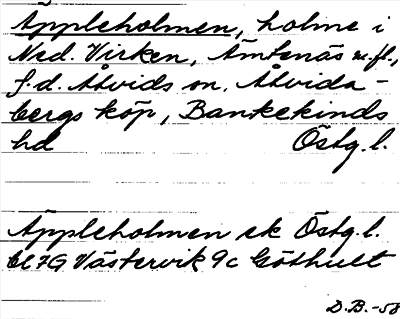 Äppleholmen, holme i
Ned. Virken, Ämtenäs m.fl.,
f.d. Åtvids sn, Åtvida-
bergs köp, Bankekinds
hd Östg.l.
Äppleholmen ek Östg.l.
bl 7G Västervik 9c Göthult
D.B.-58